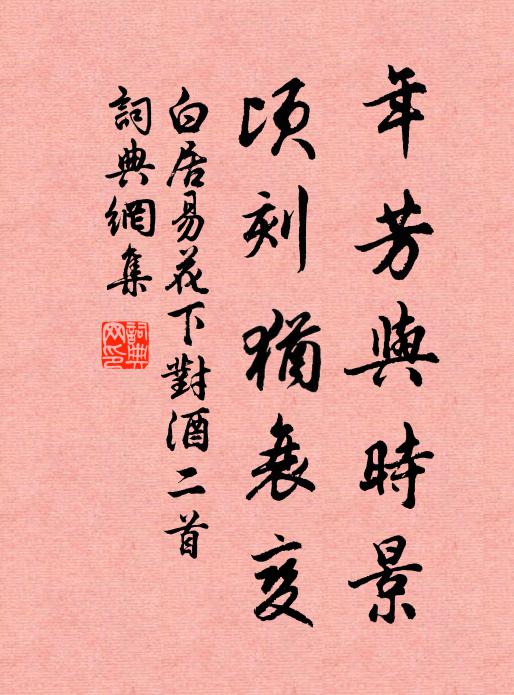 年芳與時景
頃刻猶衰變
白居易花下對酒二首
詞典網集
詞典網印